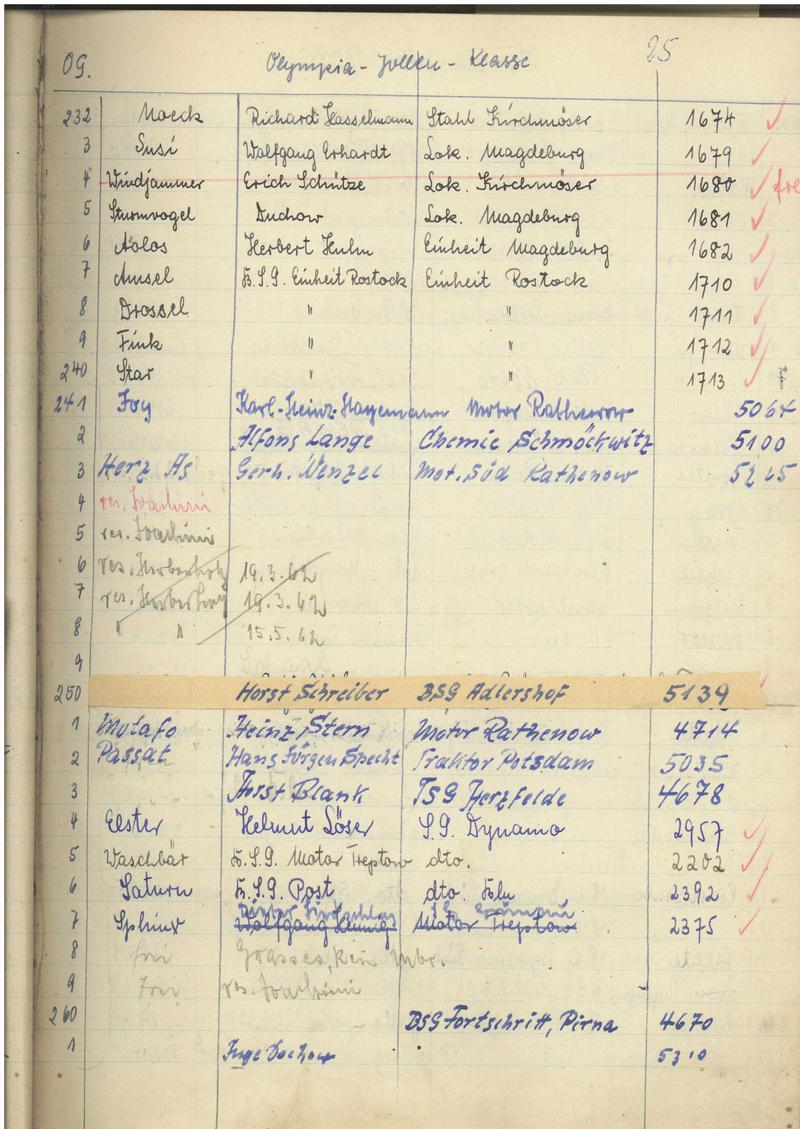 OG. Olympia-Jollen-Klasse 25
232 Noeck Richard Hasselmann Stahl Kirchmöser 1674
3 Susi Wolfgang Erhardt Lok. Magdeburg 1679
4 Windjammer Erich Schütze Lok. Kirchmöser 1680
5 Sturmvogel Duchow Lok. Magdeburg 1681
6 Aolos Herbert Huhn Einheit Magdeburg 1682
7 Amsel B.S.G. Einheit Rostock Einheit Rostock 1710
8 Drossel " " 1711
9 Fink " " 1712
240 Star " " 1713
241 Joy Karl-Heinz Hagemann Motor Rathenow 5064
2 Alfons Lange Chemie Schmöckwitz 5100
3 Herz As Gerh. Wenzel Mot. Süd Rathenow 5265
4 res. Joachimi
5 res. Joachimi
6 res. 19.3.62
7 res. 19.3.62
8 " " 15.5.62
9
250 Horst Schreiber BSG Adlershof 5139
1 Motafo Heinz Stern Motor Rathenow 4714
2 Passat Hans Jürgen Specht Traktor Potsdam 5035
3 Horst Blank TSG Herzfelde 4678
4 Elster Helmut Löser S.G. Dynamo 2957
5 Waschbär B.S.G. Motor Treptow dto. 2202
6 Saturn B.S.G. Post dto. Bln 2392
7 Sphinx Wolfgang Hennig Motor Treptow 2375
8 frei Grosses, kein
9 frei res. Joachimi
260 BSG Fortschritt, Pirna 4670
1 Inge Dochow 5310